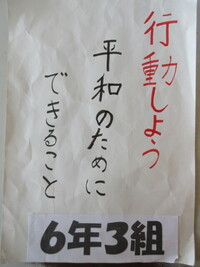 行動しよう
平和のために
できること
6年3組